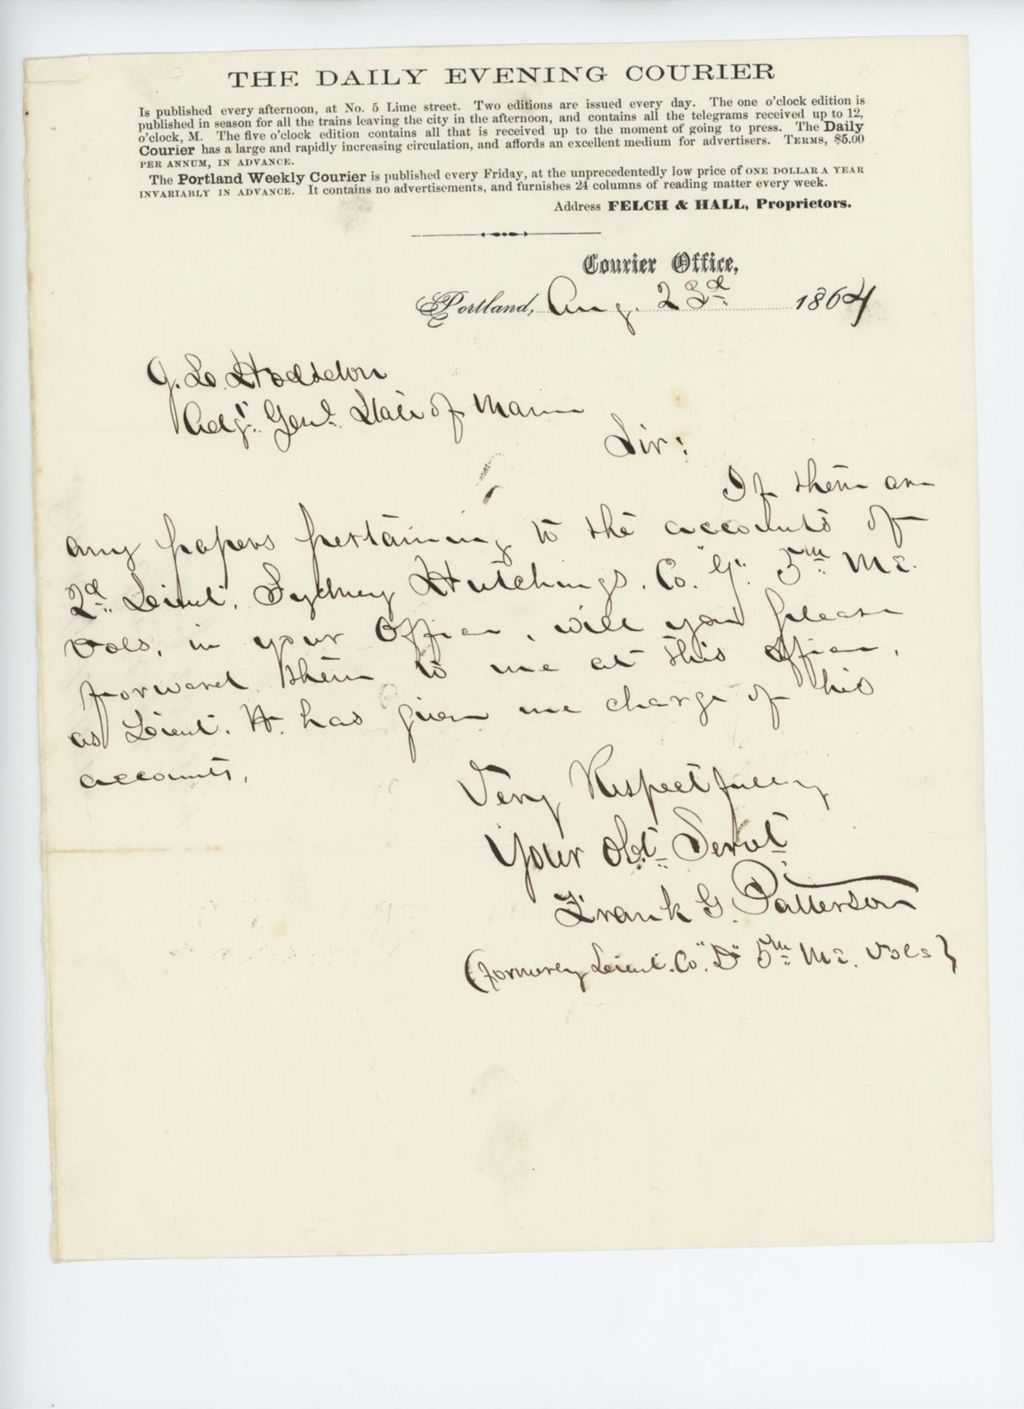 THE DAILY EVENING COURIER
Is published every afternoon, at No. 5 Lime street. Two editions are issued every day. The one o'clock edition is
published in season for all the trains leaving the city in the afternoon, and contains all the telegrams received up to 12,
o'clock, M. The five o'clock edition contains all that is received up to the moment of going to press. The Daily
Courier has a large and rapidly increasing circulation, and affords an excellent medium for advertisers. TERMS, $5.00
PER ANNUM, IN ADVANCE.
The Portland Weekly Courier is published every Friday, at the unprecedentedly low price of ONE DOLLAR A YEAR
INVARIABLY IN ADVANCE. It contains no advertisements, and furnishes 24 columns of reading matter every week.
Address FELCH & HALL, Proprietors.
Courier Office,
Portland, Aug. 23d 1864
J. L. Hodsdon
Adjt. Genl. State of Maine
Sir:
If there are
any papers pertaining to the accounts of
2d. Lieut. Sydney Hutchings. Co. "G". 5th Me.
Vols. in your Office, will you please
forward them to me at this office,
as Lieut. H. has given me charge of his
accounts.
Very Respectfully
Your Obt. Servt.
Frank G. Patterson
(formerly Lieut. Co. "D" 5th Me. Vols)